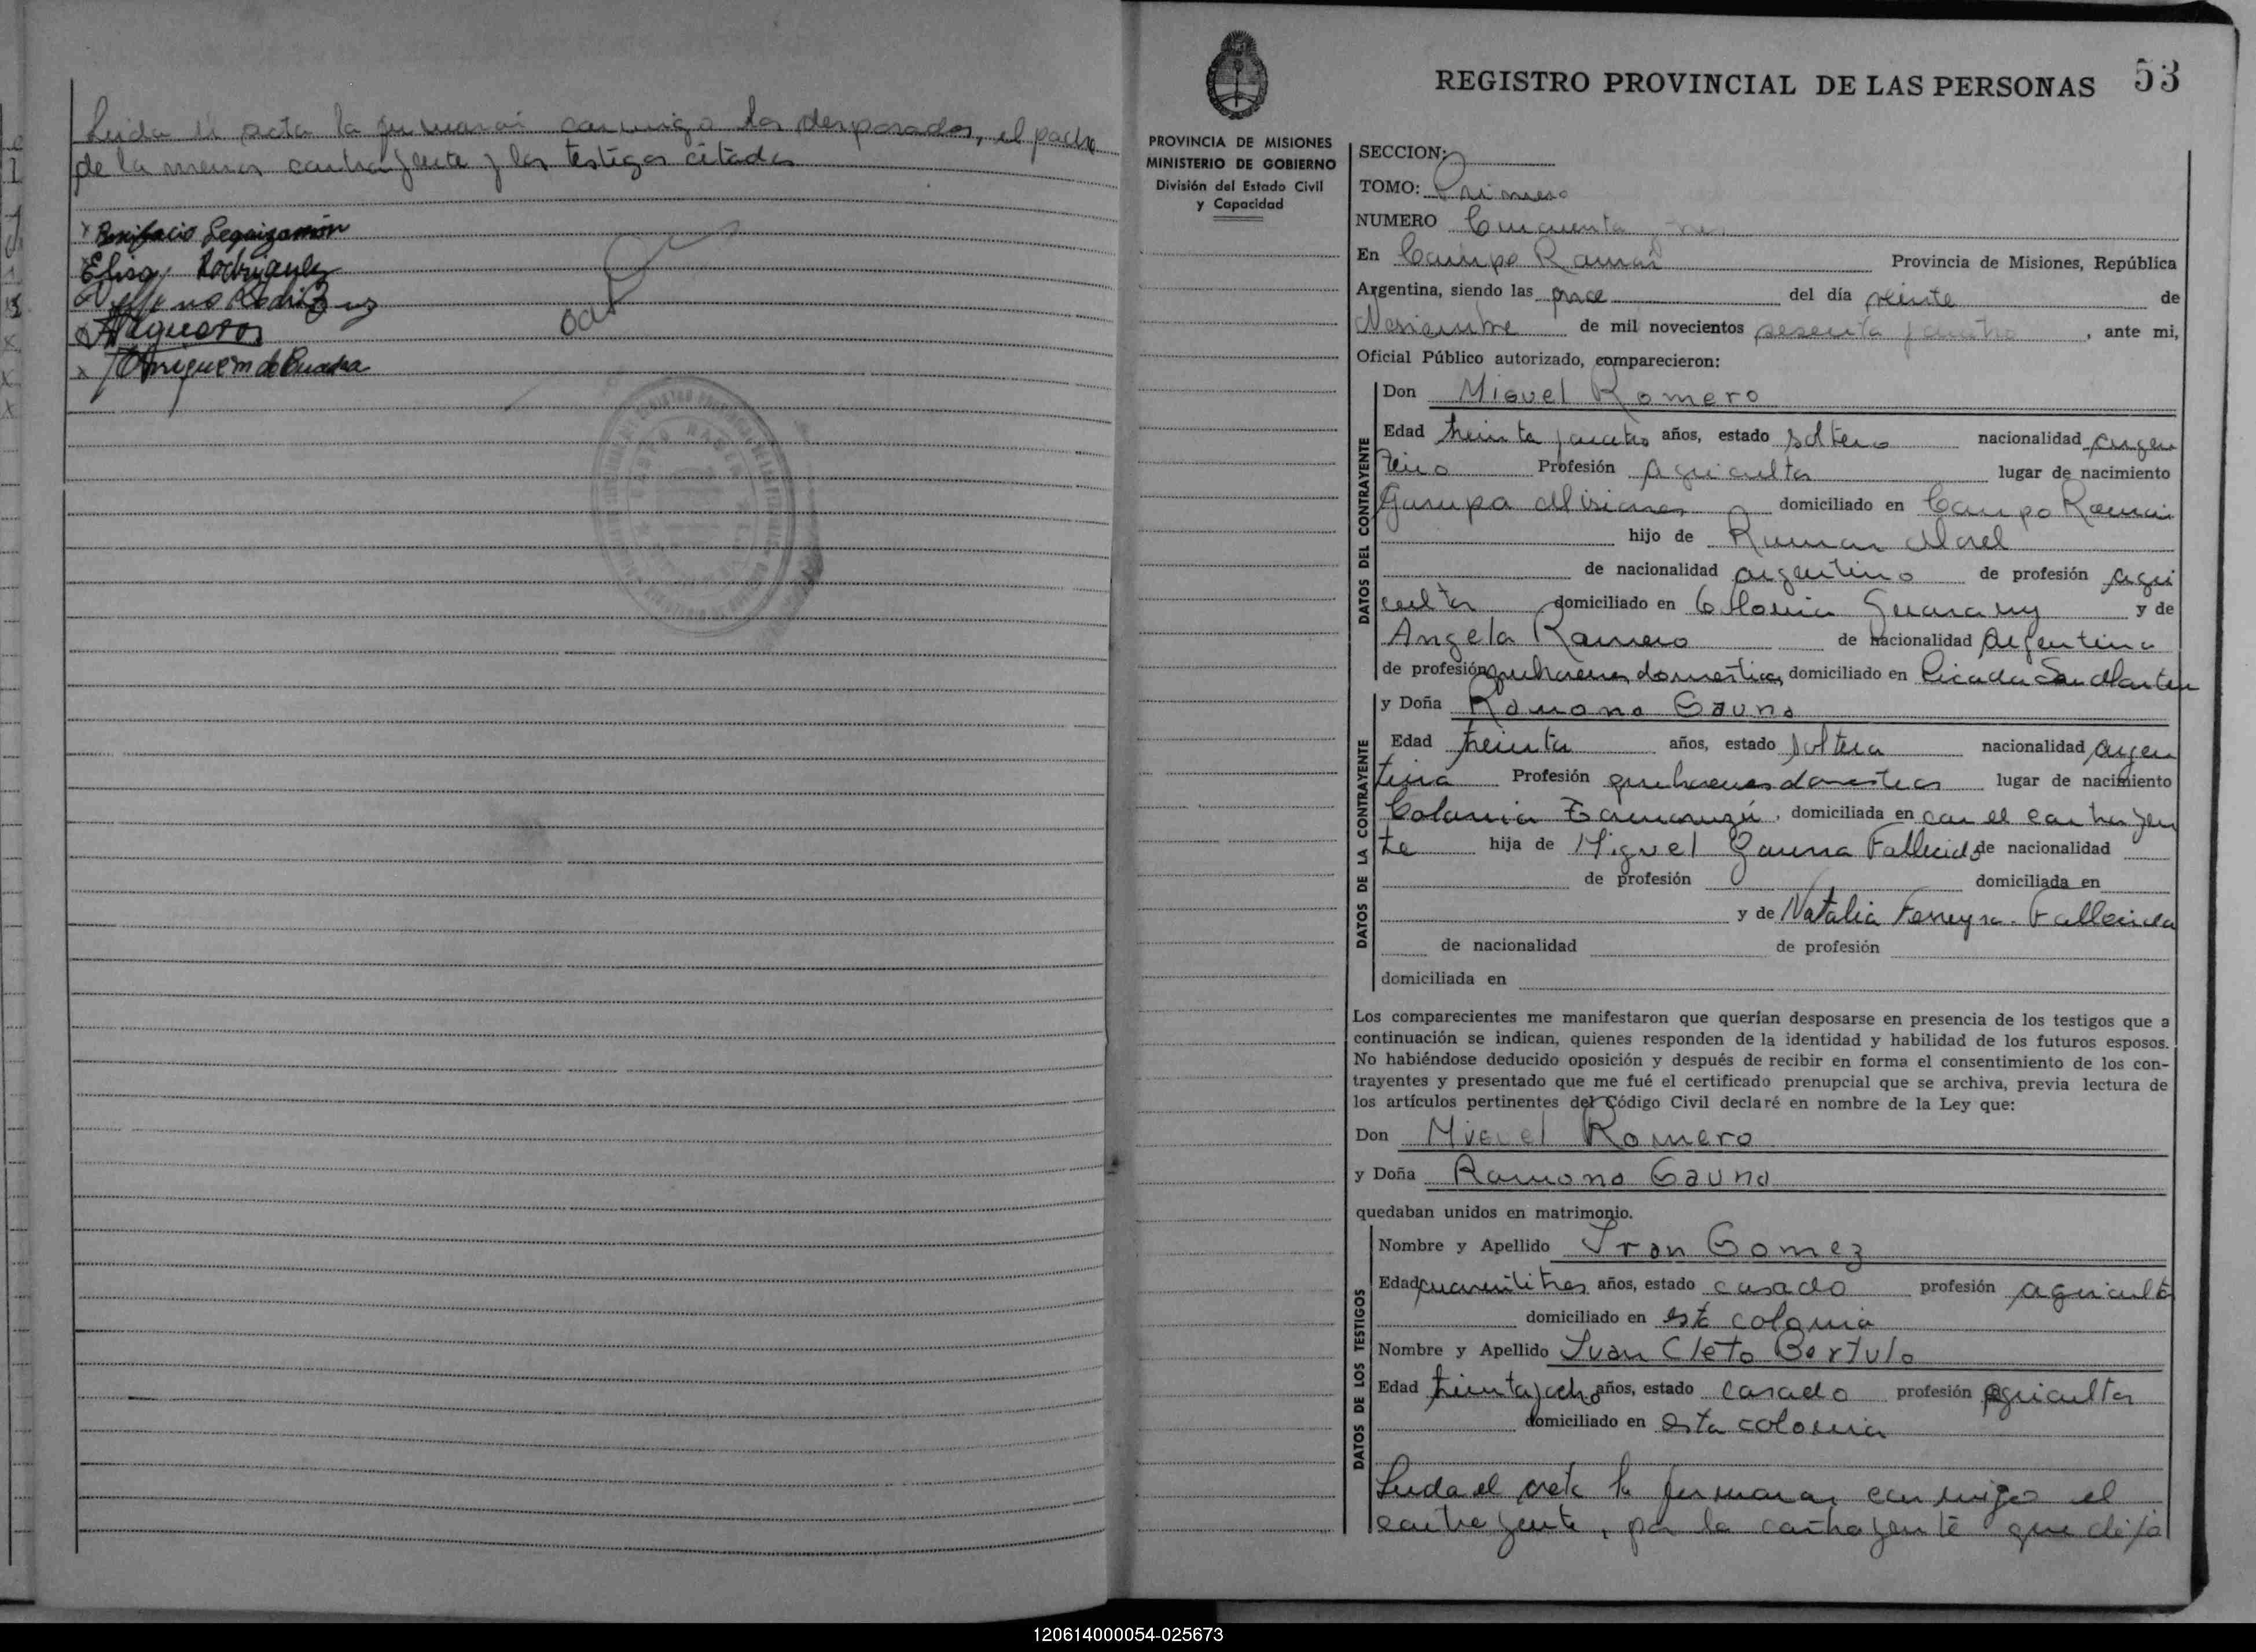 Leida el acta la firmaran conmigo los desposados, el padre
de la menor contrayente y los testigos citados
Bonifacio Leguizamón
Elisa Rodriguez
REGISTRO PROVINCIAL DE LAS PERSONAS 53
PROVINCIA DE MISIONES
MINISTERIO DE GOBIERNO
División del Estado Civil
y Capacidad
SECCION:
TOMO: Primero
NUMERO Cincuenta y tres
En Campo Ramon Provincia de Misiones, República
Argentina, siendo las once del día veinte de
Noviembre de mil novecientos sesenta y cuatro, ante mi,
Oficial Público autorizado, comparecieron:
DATOS DEL CONTRAYENTE
Don Miguel Romero
Edad treinta y cuatro años, estado soltero nacionalidad argen
tino Profesión agricultor lugar de nacimiento
Garupa Misiones domiciliado en Campo Ramon
hijo de Roman Morel
de nacionalidad argentino de profesión agri
cultor domiciliado en Colonia Guarany y de
Angela Romero de nacionalidad argentina
de profesión quehaceres domesticos domiciliado en Picada San Martin
DATOS DE LA CONTRAYENTE
y Doña Ramona Gauna
Edad treinta años, estado soltera nacionalidad argen
tina Profesión quehaceres domesticos lugar de nacimiento
Colonia domiciliada en con el contrayen
te hija de Miguel Gauna Fallecido de nacionalidad
de profesión domiciliada en
y de Natalia Ferreyra. Fallecida
de nacionalidad de profesión
domiciliada en
Los comparecientes me manifestaron que querían desposarse en presencia de los testigos que a
continuación se indican, quienes responden de la identidad y habilidad de los futuros esposos.
No habiéndose deducido oposición y después de recibir en forma el consentimiento de los con-
trayentes y presentado que me fué el certificado prenupcial que se archiva, previa lectura de
los artículos pertinentes del Código Civil declaré en nombre de la Ley que:
Don Miguel Romero
y Doña Ramona Gauna
quedaban unidos en matrimonio.
DATOS DE LOS TESTIGOS
Nombre y Apellido Gomez
Edad cuarentitres años, estado casado profesión agricultor
domiciliado en esta colonia
Nombre y Apellido Juan Cleto Bertulo
Edad treinta y ocho años, estado casado profesión agricultor
domiciliado en esta colonia
Leida el acta la firmaran conmigo el
contrayente, por la contrayente que dijo
120614000054-025673